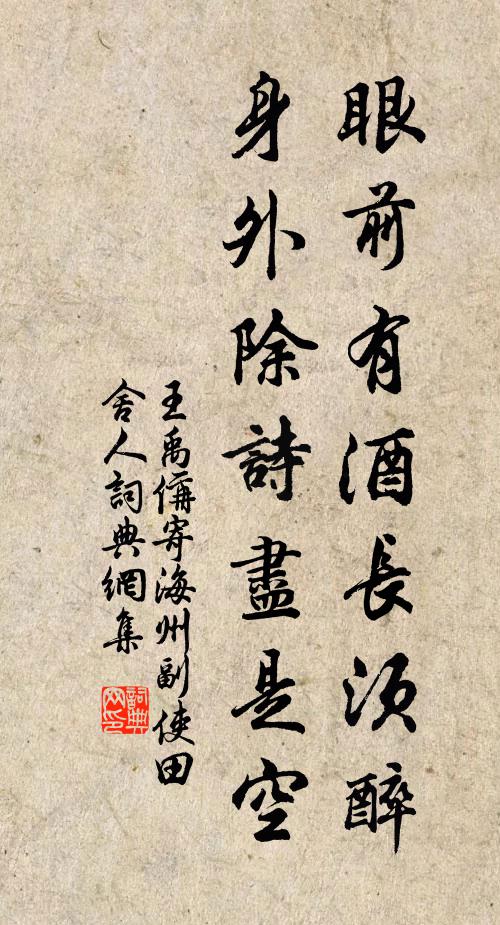 眼前有酒長須醉
身外除詩盡是空
王禹偁寄海州副使田
舍人詞典網集
詞典网印